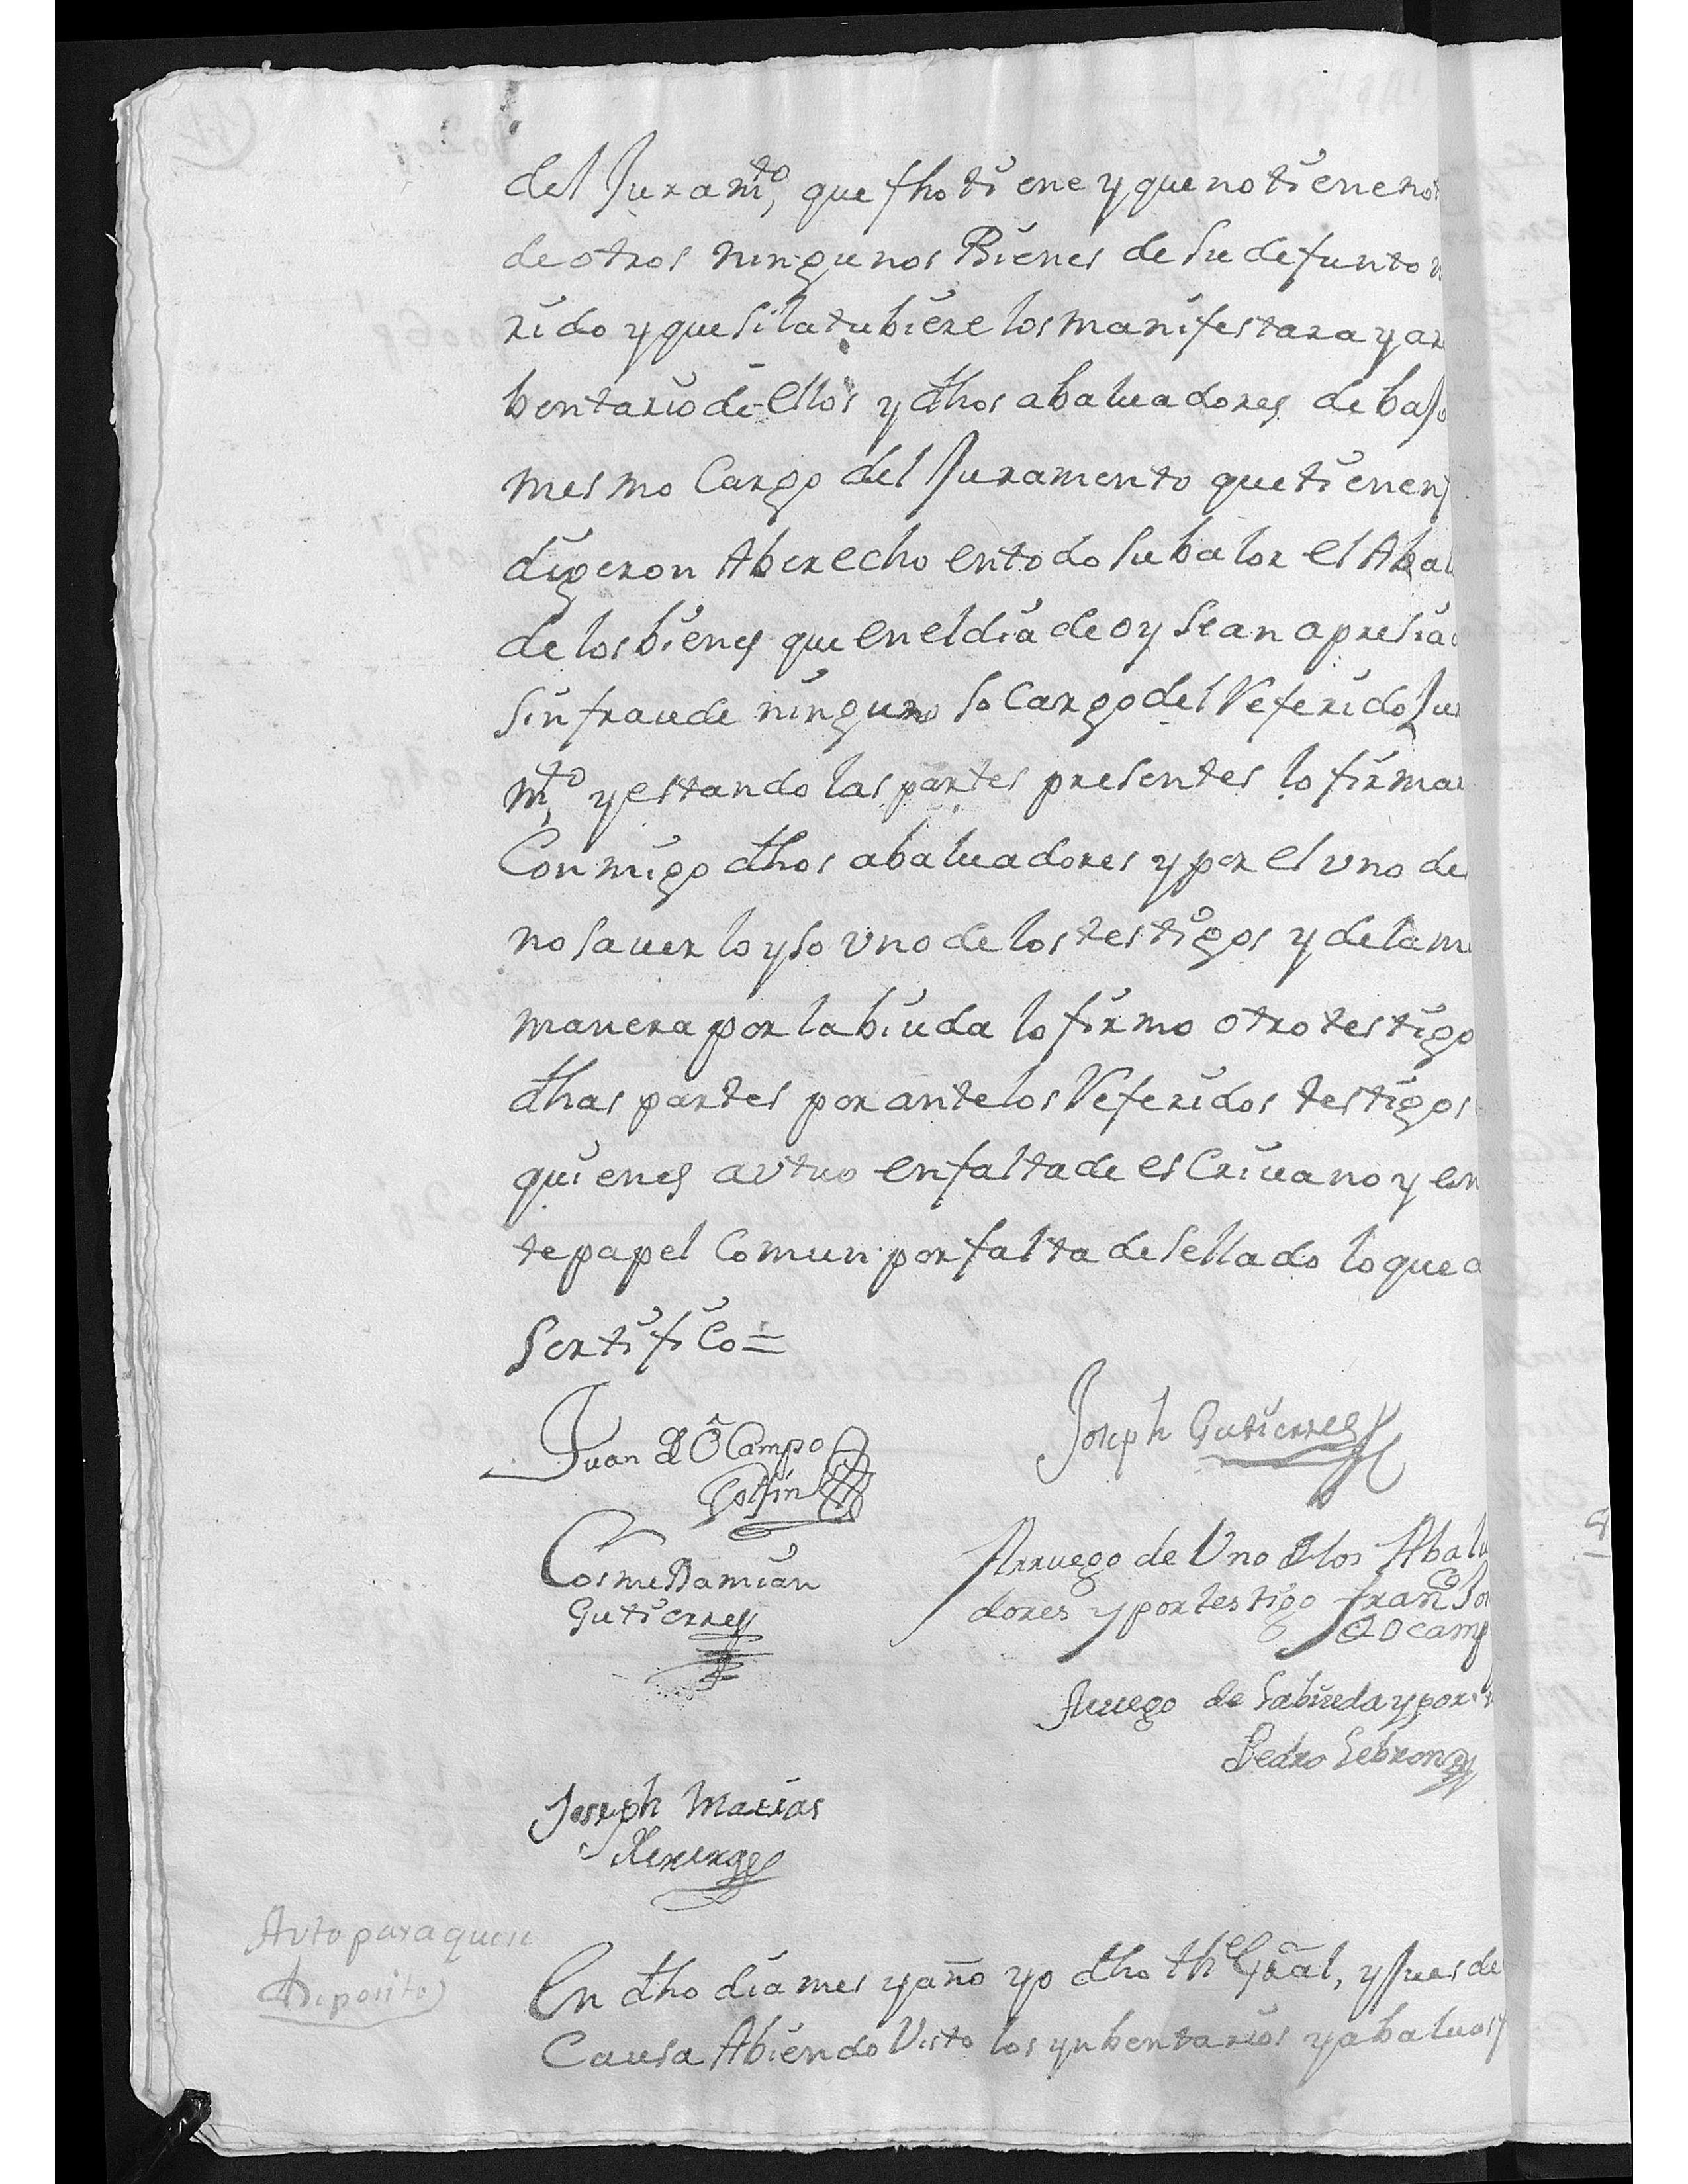 del Juramto, que fho tiene y que no tiene not
de otros ningunos Bienes de su defunto m
rido y que si la tubiere los manifestara y ar
bentario de ellos y dhos abaluadores debajo
mesmo Cargo del Juramento que tienen
digeron Aber echo en todo su balor el Abal
de los bienes que en el dia de oy sean apresia
sin fraude ninguno so Cargo del Referido Jur
mto, y estando las partes presentes lo firmar
Conmigo dhos abaluadores y por el uno de
no saver lo yso vno de los testigos y de la me
manera por la biuda lo firmo otro testigo
dhas partes por ante los Referidos testigos
quienes avtuo en falta de escrivano y en
te papel Comun por falta de sellado lo que a
Sertifico =
Juan de OCampo
Golfin
Joseph Gutierres
Cosme Damian
Gutierres
Arruego de Uno de los Abalu
dores y por testigo Franco
de Ocamp
Aruego de la biueda y por
Pedro Lebron
Joseph Macias
Avto para que se
Deposito
En dho dia mes y año yo dho the Gral, y Jues de
Causa Abiendo Visto los ynbentarios y abaluos y